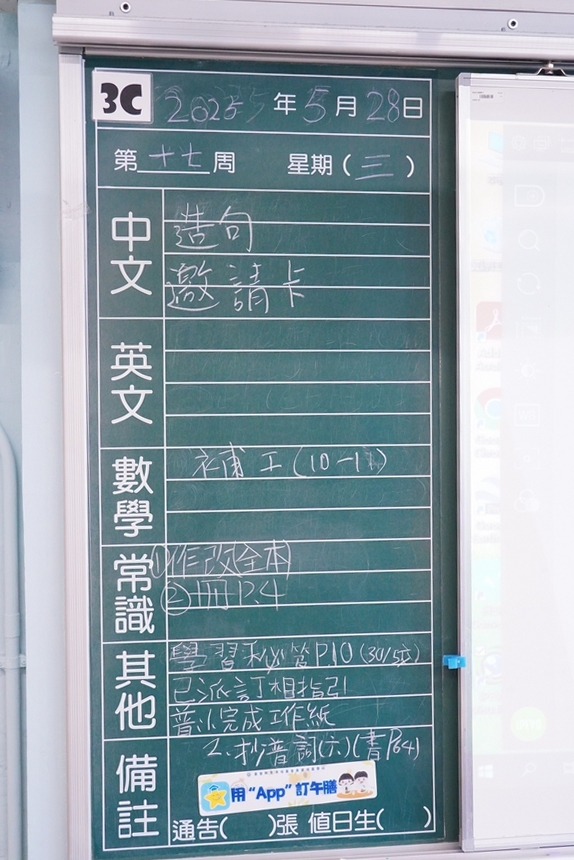 3C 2025年5月28日
第十七周 星期(三)
中文
造句
邀請卡
英文
數學
補工(10-11)
常識
①作改全本
②冊P.4
其他
學習 P10(30/5交)
已派訂相指引
普1.完成工作紙
2.抄普詞(六)(書P64)
備註
用“App”訂午膳
通告( )張 值日生( )